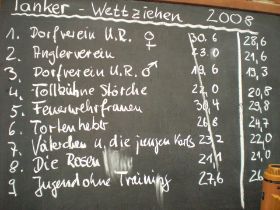 Tanker - Wettziehen 2008
1. Dorfverein U.R. ♀ 30,6 28,6
2. Anglerverein 23,0 21,6
3. Dorfverein U.R. ♂ 19,6 19,3
4. Tollkühne Störche 22,0 20,8
5. Feuerwehrfrauen 30,4 29,8
6. Tortenheber 26,8 24,7
7. Väterchen u. die jungen Kerls 23,2 22,0
8. Die Rosen 21,1 21,0
9 Jugend ohne Training 27,6 26